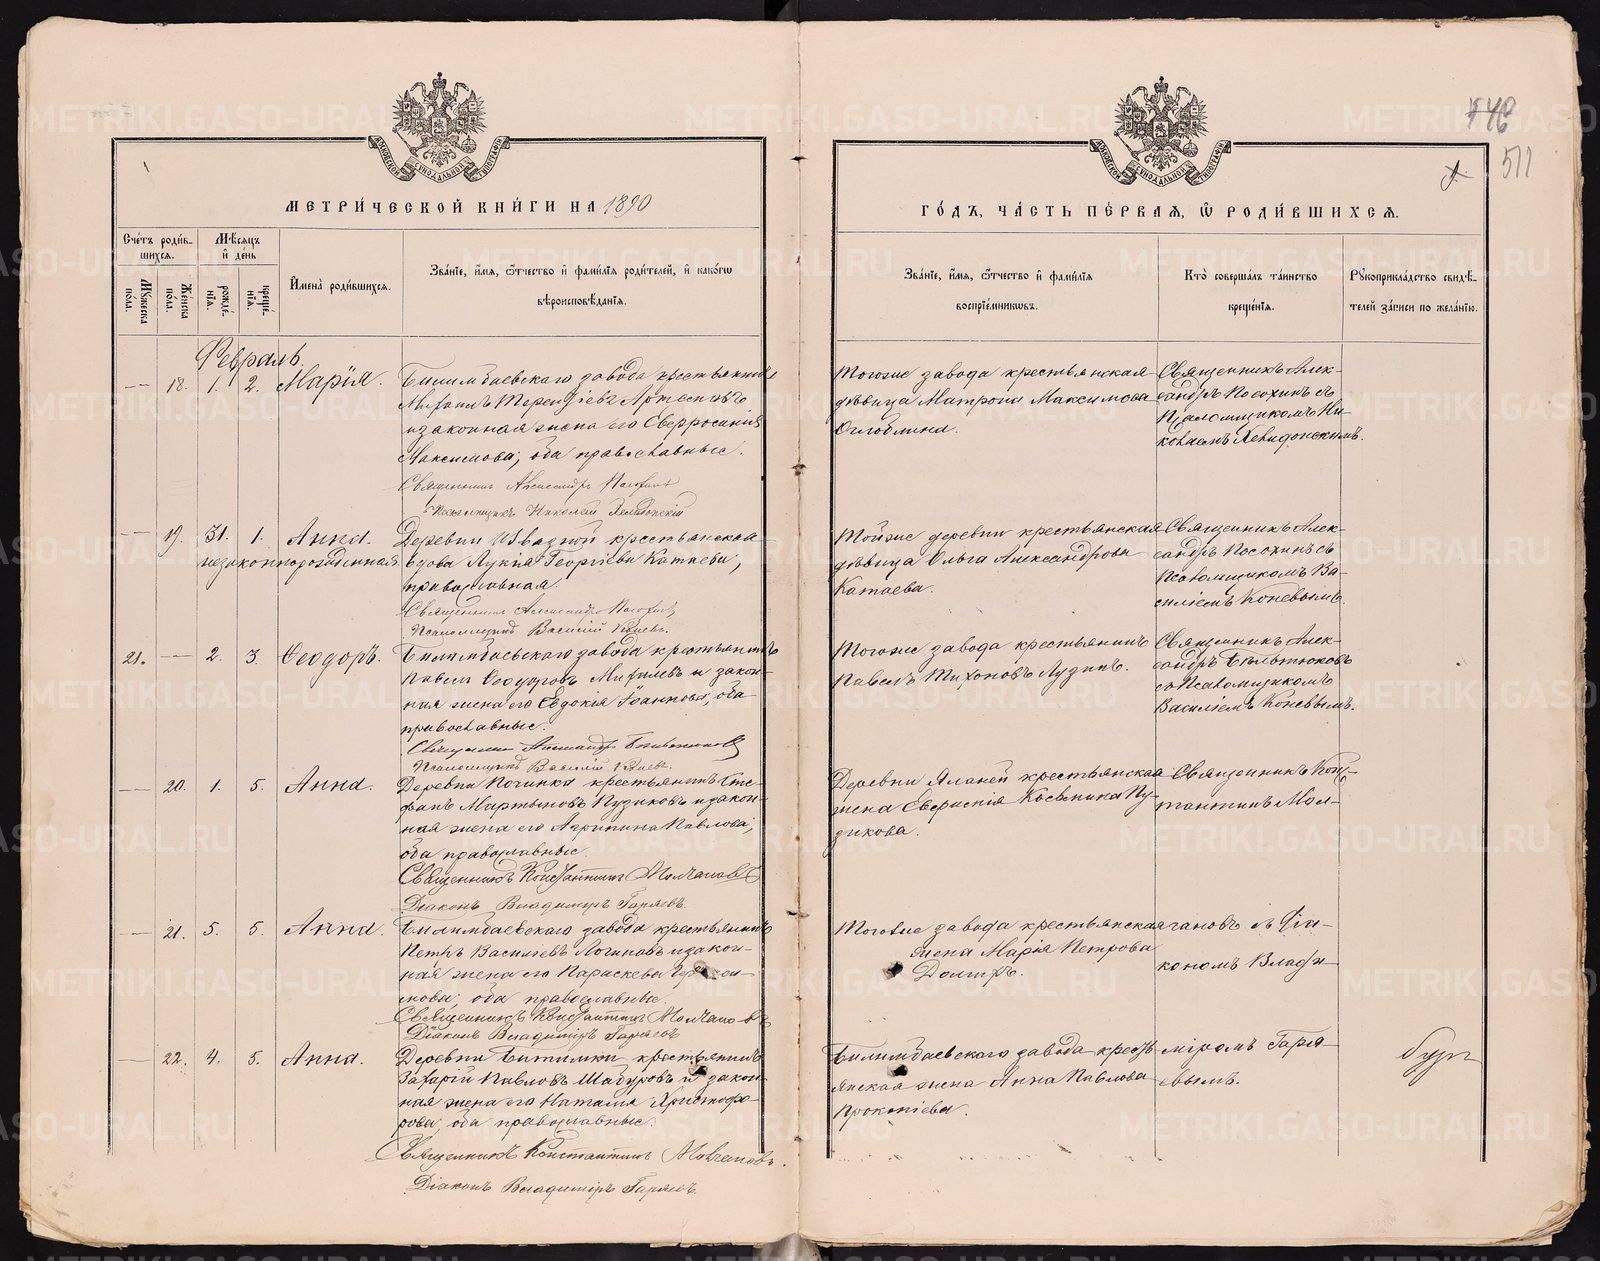 546
511
МЕТРИЧЕСКОЙ КНИГИ НА 1890
ГОДЪ, ЧАСТЬ ПЕРВАЯ, Ѡ РОДИВШИХСЯ.
Счетъ родившихся.
Мужеска пола.
Женска пола.
Мѣсяцъ и день
рожденія.
крещенія.
Имена родившихся.
Званіе, имя, отчество и фамилія родителей, и какогѡ
вѣроисповѣданія.
Званіе, имя, отчество и фамилія
воспріемниковъ.
Кто совершалъ таинство
крещенія.
Рукоприкладство свидѣтелей записи по желанію.
Февраль.
18. 1. 2. Марія.
Билимбаевскаго завода крестьянинъ
Михаилъ Терентіевъ
и законная жена его
Максимова, оба православные.
Священникъ Александръ Посохинъ
Псаломщикъ Николай
Тогоже завода крестьянская
дѣвица Матрона Максимова
Оглоблина.
Священникъ Алек-
сандръ Посохинъ съ
Псаломщикомъ Ни-
колаемъ
19. 31. 1. Анна.
незаконнорожденная
Деревни Извѣзной крестьянская
вдова Лукія Георгіева Катаева,
православная.
Священникъ Александръ Посохинъ
Псаломщикъ Василій Коневъ.
Тойже деревни крестьянская
дѣвица Ольга Александрова
Катаева.
Священникъ Алек-
сандръ Посохинъ съ
Псаломщикомъ Ва-
силіемъ Коневымъ
21. 2. 3. Ѳеодоръ.
Билимбаевскаго завода крестьянинъ
Павелъ Ѳеодоровъ Михалевъ и закон-
ная жена его Евдокія Іоаннова, оба
православные.
Священникъ Александръ
Псаломщикъ Василій Коневъ.
Тогоже завода крестьянинъ
Павелъ Тихоновъ Лузинъ.
Священникъ Алек-
сандръ Бѣльтюковъ
съ Псаломщикомъ
Василіемъ Коневымъ.
20. 1. 5. Анна.
Деревни Починка крестьянинъ Сте-
фанъ Мартыновъ Пузиковъ и закон-
ная жена его Агрипина Павлова,
оба православные.
Священникъ Константинъ Молчановъ
Діаконъ Владиміръ Гаряевъ.
Деревни крестьянская
жена Пу-
зикова.
Священникъ Конс-
тантинъ Мол-
21. 5. 5. Анна.
Билимбаевскаго завода крестьянинъ
Петръ Василіевъ Логиновъ и закон-
ная жена его Параскева
мова, оба православные.
Священникъ Константинъ Молчановъ
Діаконъ Владиміръ Гаряевъ
Тогоже завода крестьянская
жена Марія Петрова
чановъ съ Діа-
кономъ Влади-
22. 4. 5. Анна.
Деревни Битимки крестьянинъ
Захарій Павловъ Шабуровъ и закон-
ная жена его Наталія Христофо-
рова, оба православные.
Священникъ Константинъ Молчановъ.
Діаконъ Владиміръ Гаряевъ.
Билимбаевскаго завода кресть-
янская жена Анна Павлова
Прокопіева.
міромъ Гаря-
евымъ.